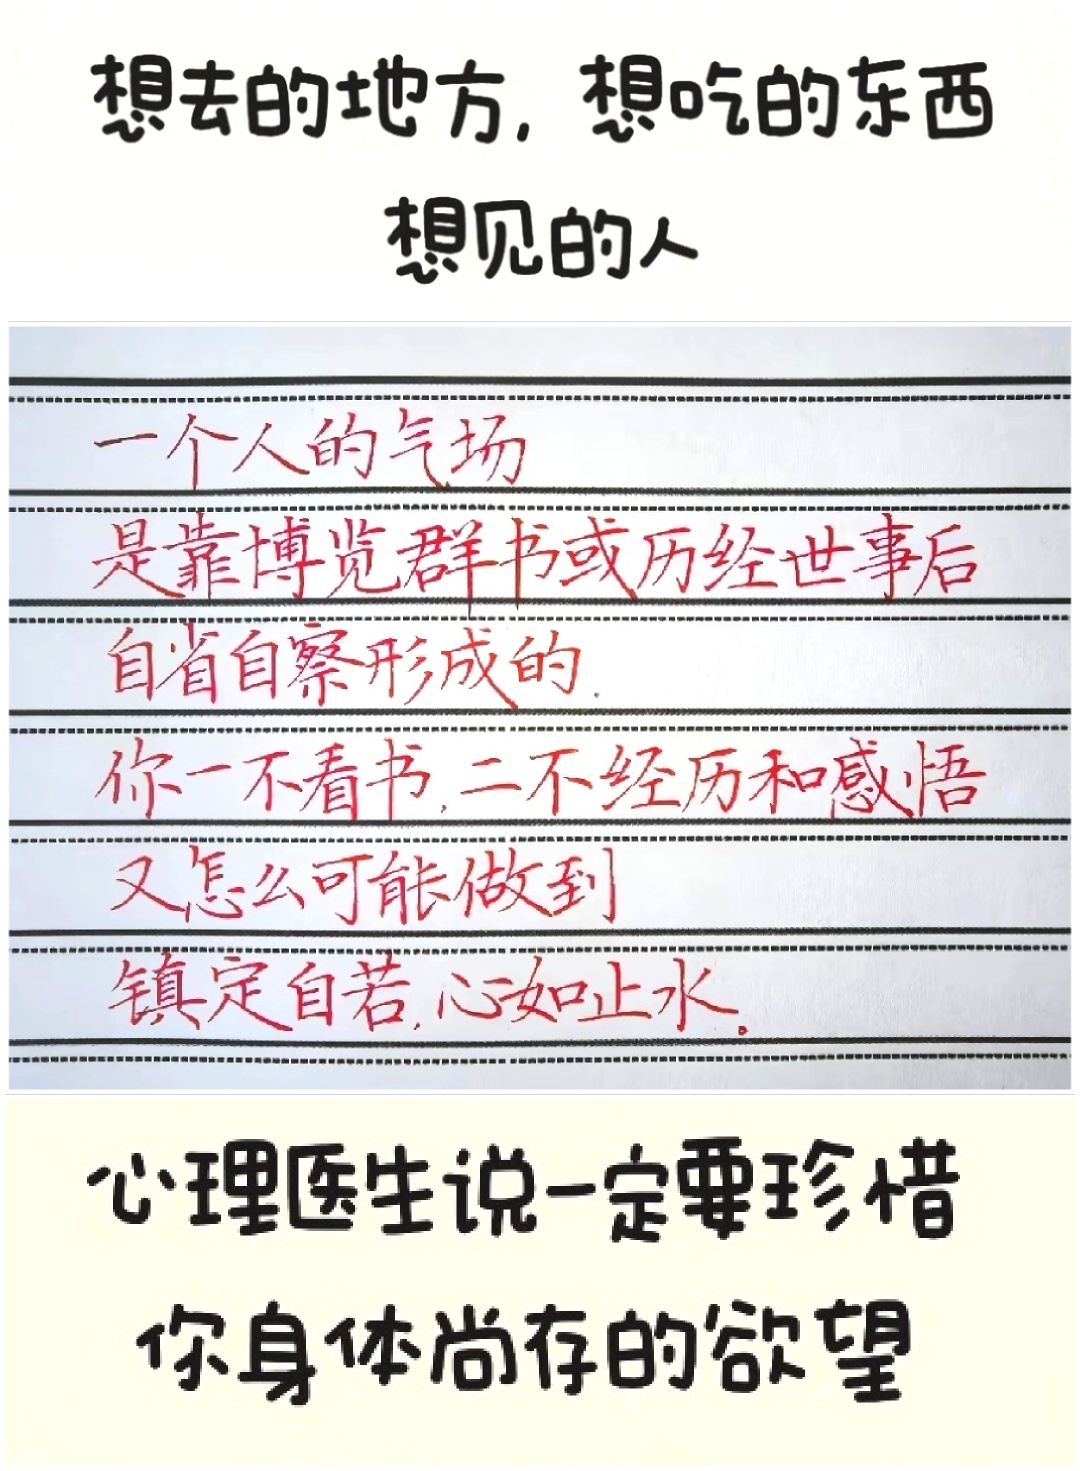 想去的地方，想吃的东西
想见的人
一个人的气场
是靠博览群书或历经世事后
自省自察形成的.
你一不看书,二不经历和感悟
又怎么可能做到
镇定自若,心如止水。
心理医生说一定要珍惜
你身体尚存的欲望